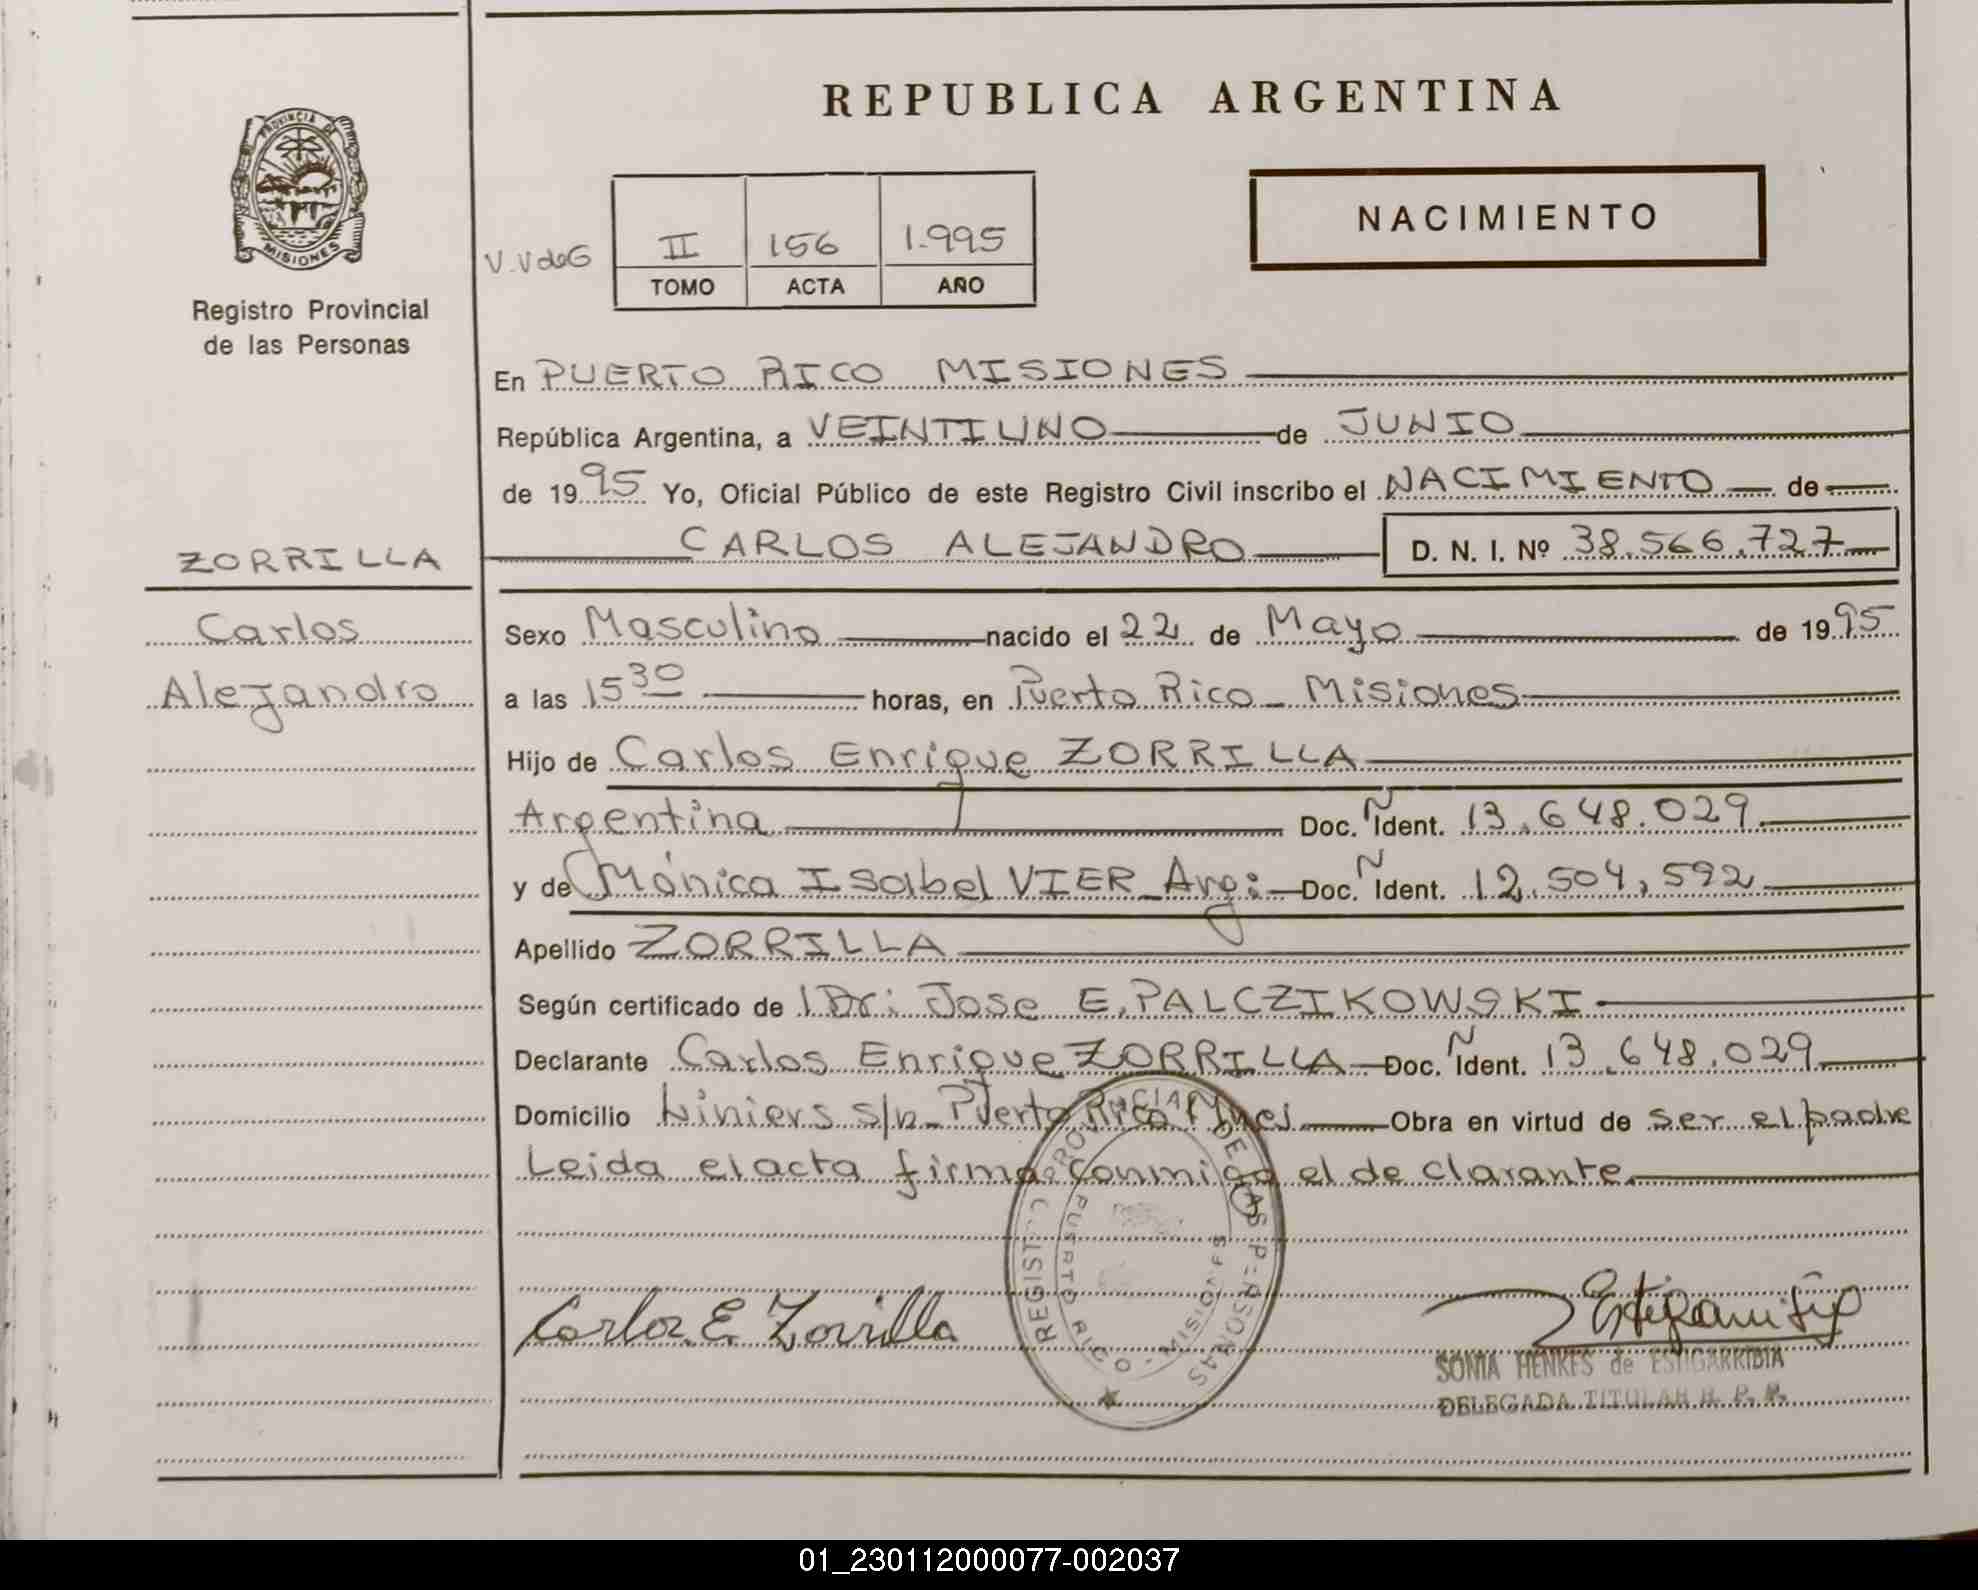 REPUBLICA ARGENTINA
PROVINCIA DE
MISIONES
Registro Provincial
de las Personas
NACIMIENTO
V.VdeG II 156 1.995
TOMO ACTA AÑO
En PUERTO RICO MISIONES
República Argentina, a VEINTIUNO de JUNIO
de 1995 Yo, Oficial Público de este Registro Civil inscribo el NACIMIENTO de
CARLOS ALEJANDRO D. N. I. Nº 38.566.727
ZORRILLA
Carlos
Alejandro
Sexo Masculino nacido el 22 de Mayo de 1995
a las 15 30 horas, en Puerto Rico - Misiones
Hijo de Carlos Enrique ZORRILLA
Argentina Doc. Ñ Ident. 13.648.029
y de Mónica Isabel VIER - Arg: Doc. Ñ Ident. 12.504,592
Apellido ZORRILLA
Según certificado de Dr: Jose E. PALCZIKOWSKI
Declarante Carlos Enrique ZORRILLA Doc. Ñ Ident. 13.648.029
Domicilio Liniers s/n - Puerto Rico Mnes Obra en virtud de ser el padre
Leida el acta firma conmigo el de clarante
REGISTRO PROVINCIAL DE LAS PERSONAS
PUERTO RICO - MISIONES
Carlos E. Zorrilla
SONIA HENKES de ESTIGARRIBIA
DELEGADA TITULAR R. P. P.
01_230112000077-002037